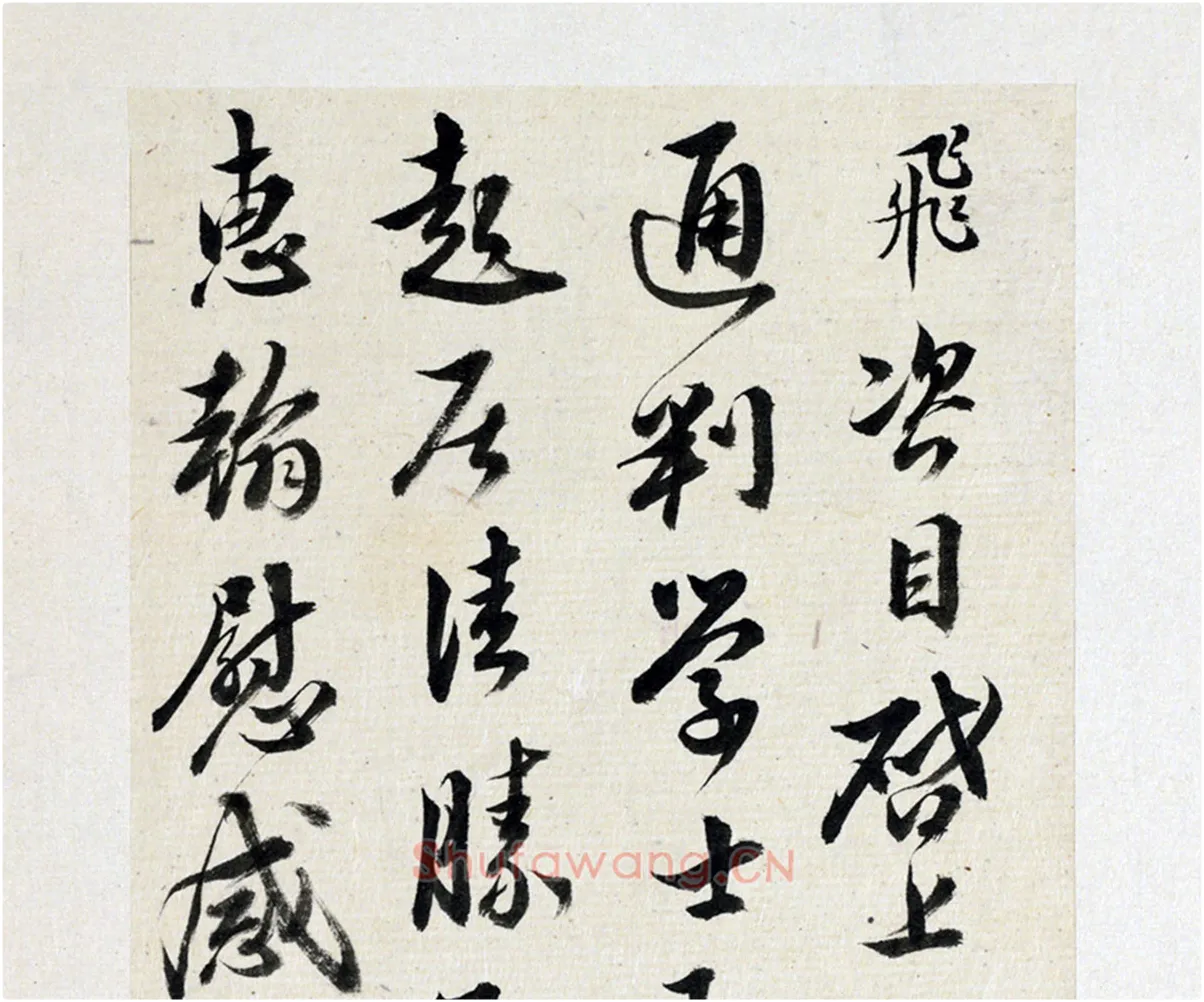 飛咨目啓上
通判学士
起居清勝
恵翰慰感
Shufawang.CN